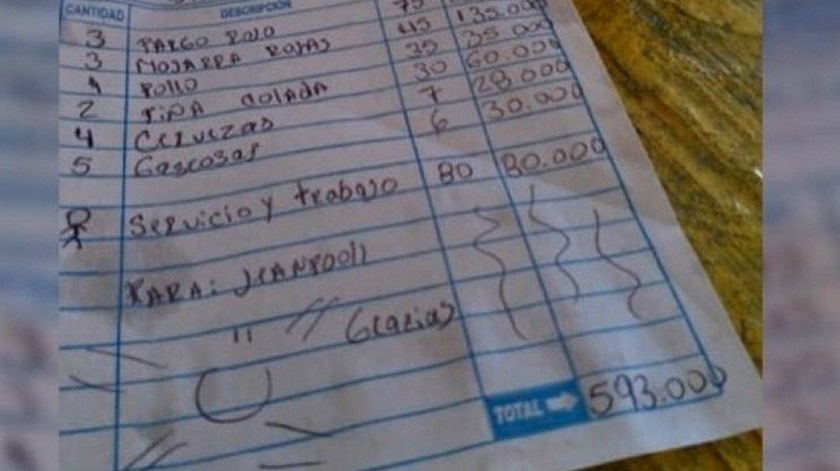 CANTIDAD DESCRIPCIÓN
3 PARGO ROJO 75
3 MOJARRA ROJAS 45 135.000
1 POLLO 35 35.000
2 PIÑA COLADA 30 60.000
4 Cervezas 7 28.000
5 Gaseosas 6 30.000
Servicio y trabajo 80 80.000
PARA: JEANPOOll
Gracias
TOTAL 593.000